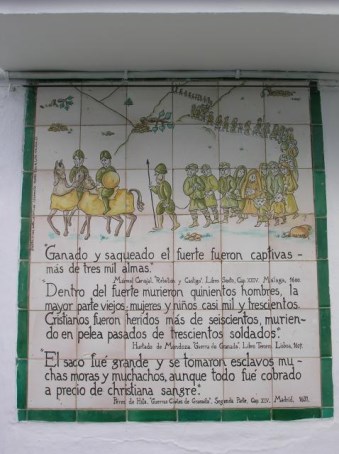 "Ganado y saqueado el fuerte fueron captivas -
más de tres mil almas."
Marmol Carvajal, "Rebelion y Castigo". Libro Sexto, Cap. XXV. Málaga, 1600.
"Dentro del fuerte murieron quinientos hombres, la
mayor parte viejos; mujeres y niños casi mil y trescientos.
Cristianos fueron heridos más de seiscientos, murien-
do en pelea pasados de trescientos soldados."
Hurtado de Mendoza, "Guerra de Granada". Libro Tercero. Lisboa, 1627.
"El saco fué grande y se tomaron esclavos mu-
chas moras y muchachos, aunque todo fué cobrado
a precio de christiana sangre."
Pérez de Hita, "Guerras Civiles de Granada". Segunda Parte, Cap. XIV. Madrid, 1631.